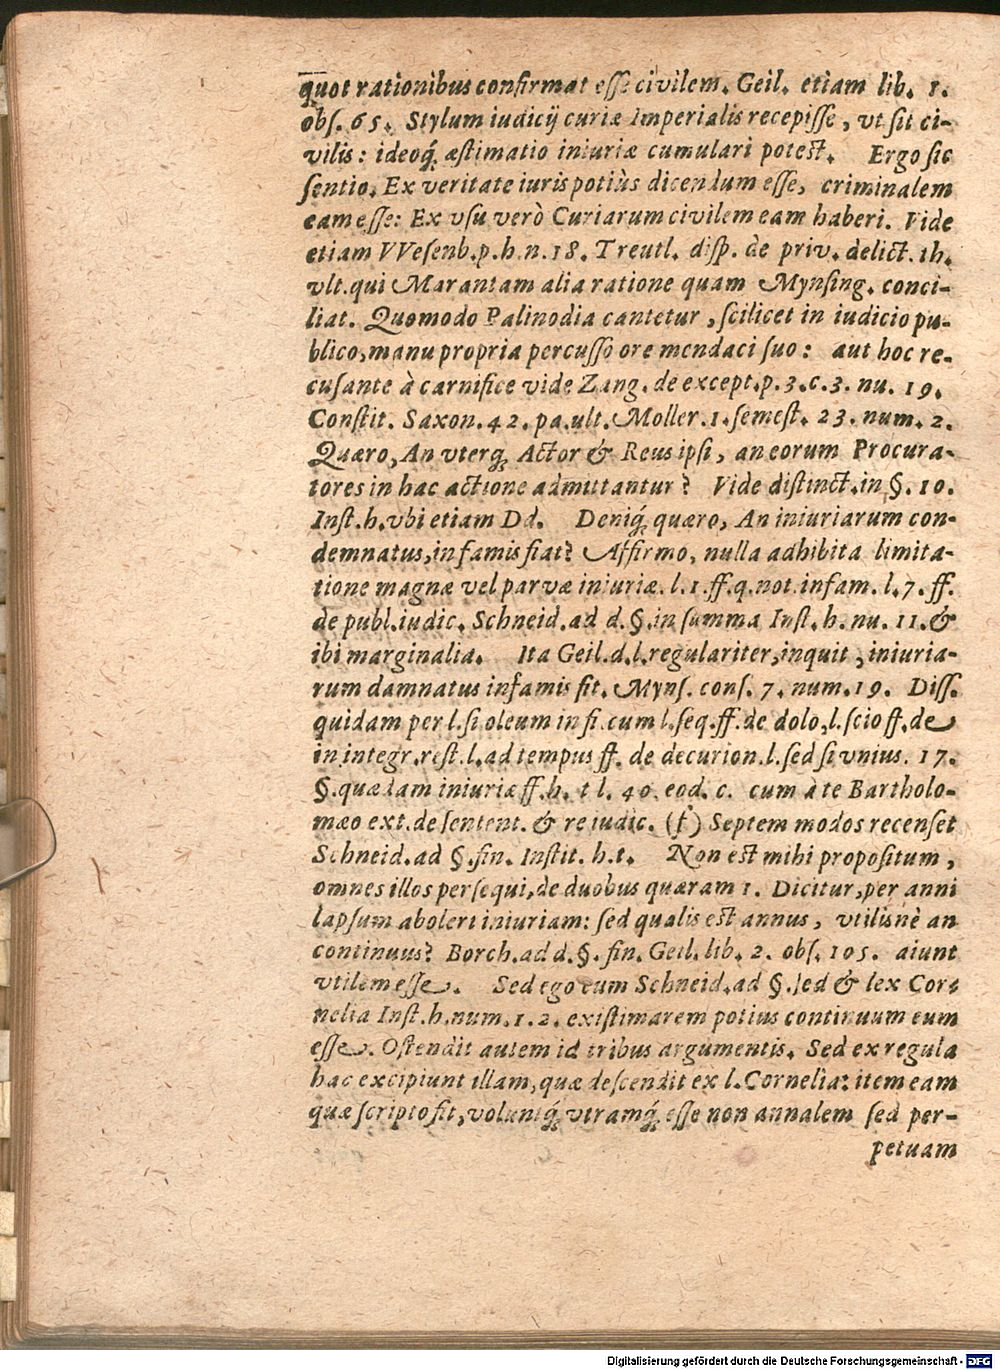 quot rationibus confirmat esse civilem. Geil. etiam lib. 1.
obs. 65. Stylum iudicij curiæ Imperialis recepisse, vt sit ci-
vilis: ideoq́; æstimatio iniuriæ cumulari potest. Ergo sic
sentio. Ex veritate iuris potiùs dicendum esse, criminalem
eam esse: Ex vsu verò Curiarum civilem eam haberi. Vide
etiam VVesenb. p. h. n. 18. Treutl. disp. de priv. delict. th.
vlt. qui Marantam alia ratione quam Mynsing. conci-
liat. Quomodo Palinodia cantetur, scilicet in iudicio pu-
blico, manu propria percusso ore mendaci suo: aut hoc re-
cusante à carnifice vide Zang. de except. p. 3. c. 3. nu. 19.
Constit. Saxon. 42. pa. ult. Moller. 1. semest. 23. num. 2.
Quæro, An vterq; Actor & Reus ipsi, an eorum Procura-
tores in hac actione admittantur? Vide distinct. in §. 10.
Inst. h. vbi etiam Dd. Deniq́; quæro, An iniuriarum con-
demnatus, infamis fiat? Affirmo, nulla adhibita limita-
tione magnæ vel parvæ iniuriæ. l. 1. ff. q. not. infam. l. 7. ff.
de publ. iudic. Schneid. ad d. §. in summa Inst. h. nu. 11. &
ibi marginalia. Ita Geil. d. l. regulariter, inquit, iniuria-
rum damnatus infamis fit. Myns. cons. 7. num. 19. Diss.
quidam per l. si oleum in fi. cum l. seq. ff. de dolo, l. scio ff. de
in integr. rest. l. ad tempus ff. de decurion. l. sed si vnius. 17.
§. quædam iniuriæ ff. h. t l. 40. eod. c. cum à te Bartholo-
mæo ext. de sentent. & re iudic. (f) Septem modos recenset
Schneid. ad §. fin. Instit. h. t. Non est mihi propositum,
omnes illos persequi, de duobus quæram 1. Dicitur, per anni
lapsum aboleri iniuriam: sed qualis est annus, vtilisnè an
continuus? Borch. ad d. §. fin. Geil. lib. 2. obs. 105. aiunt
vtilem esse. Sed ego cum Schneid. ad §. sed & lex Cor-
nelia Inst. h. num. 1. 2. existimarem potius continuum eum
esse. Ostendit autem id tribus argumentis. Sed ex regula
hac excipiunt illam, quæ descendit ex l. Cornelia: item eam
quæ scripto fit, voluntq́; vtramq́; esse non annalem sed per-
petuam
Digitalisierung gefördert durch die Deutsche Forschungsgemeinschaft - DFG